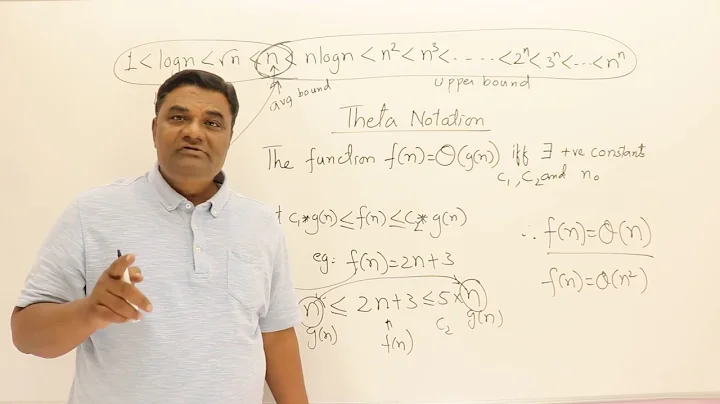 1 < logn < √n < n < nlogn < n² < n³ < ----- < 2ⁿ < 3ⁿ < ... < nⁿ
avg bound
upper bound
Theta Notation
The function f(n)=Θ(g(n)) iff ∃ +ve constants
c₁, c₂ and n₀
t c₁*g(n) ≤ f(n) ≤ c₂* g(n)
eg: f(n)=2n+3
n ≤ 2n+3 ≤ 5×n
g(n)
f(n)
c₂
g(n)
∴ f(n)=Θ(n)
f(n)=Θ(n²)